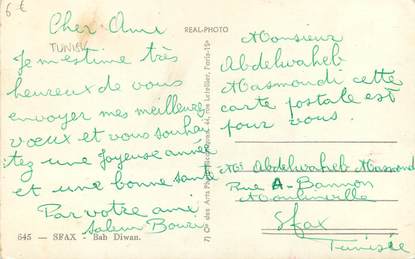 6€
Cher Ami
TUNISIE
Je m'estime très
heureux de vous
envoyer mes meilleures
vœux et vous souhai
tez une joyeuse année
et une bonne santé
Par votre ami
Salem
645 — SFAX - Bab Diwan.
REAL-PHOTO
Cie des Arts Photomécaniques, 44, rue Letellier, Paris-15e
Monsieur
Abdelwaheb
Masmoudi cette
carte postale est
pour vous.
Mr Abdelwaheb Masmoudi
Rue A-Bannon
Moulinville
Sfax
Tunisie